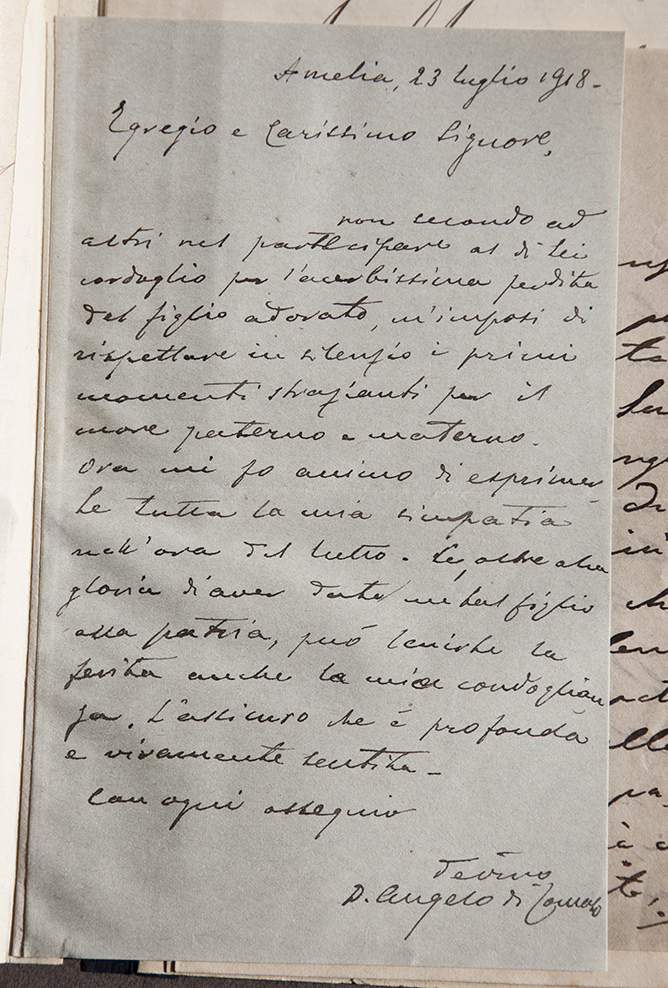 Amelia, 23 luglio 1918-
Egregio e Carissimo Signore,
non secondo ad
altri nel partecipare al di Lei
cordoglio per l'acerbissima perdita
del figlio adorato, m'imposi di
rispettare in silenzio i primi
momenti strazianti per il
cuore paterno e materno.
Ora mi fo animo di esprimer
Le tutta la mia simpatia
nell'ora del lutto. Se, oltre alla
gloria d'aver dato un tal figlio
alla patria, può lenirle la
ferita anche la mia condoglian
za. L'assicuro che è profonda
e vivamente sentita-
Con ogni ossequio
D. Angelo di